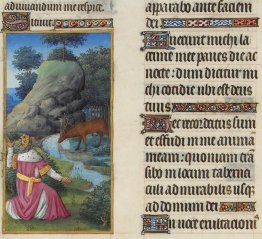 ad iuuandum me respice.
tuum.
apparabo ante faciem
dei
Fuerunt michi la
crime mee panes die ac
nocte: dum dicitur mi
chi cotidie ubi est deus
tuus
Hec recordatus sum
et effudi in me anima
meam: quoniam transi
bo in locum taberna
culi admirabilis usq
ad domum dei
In uoce exultacionis